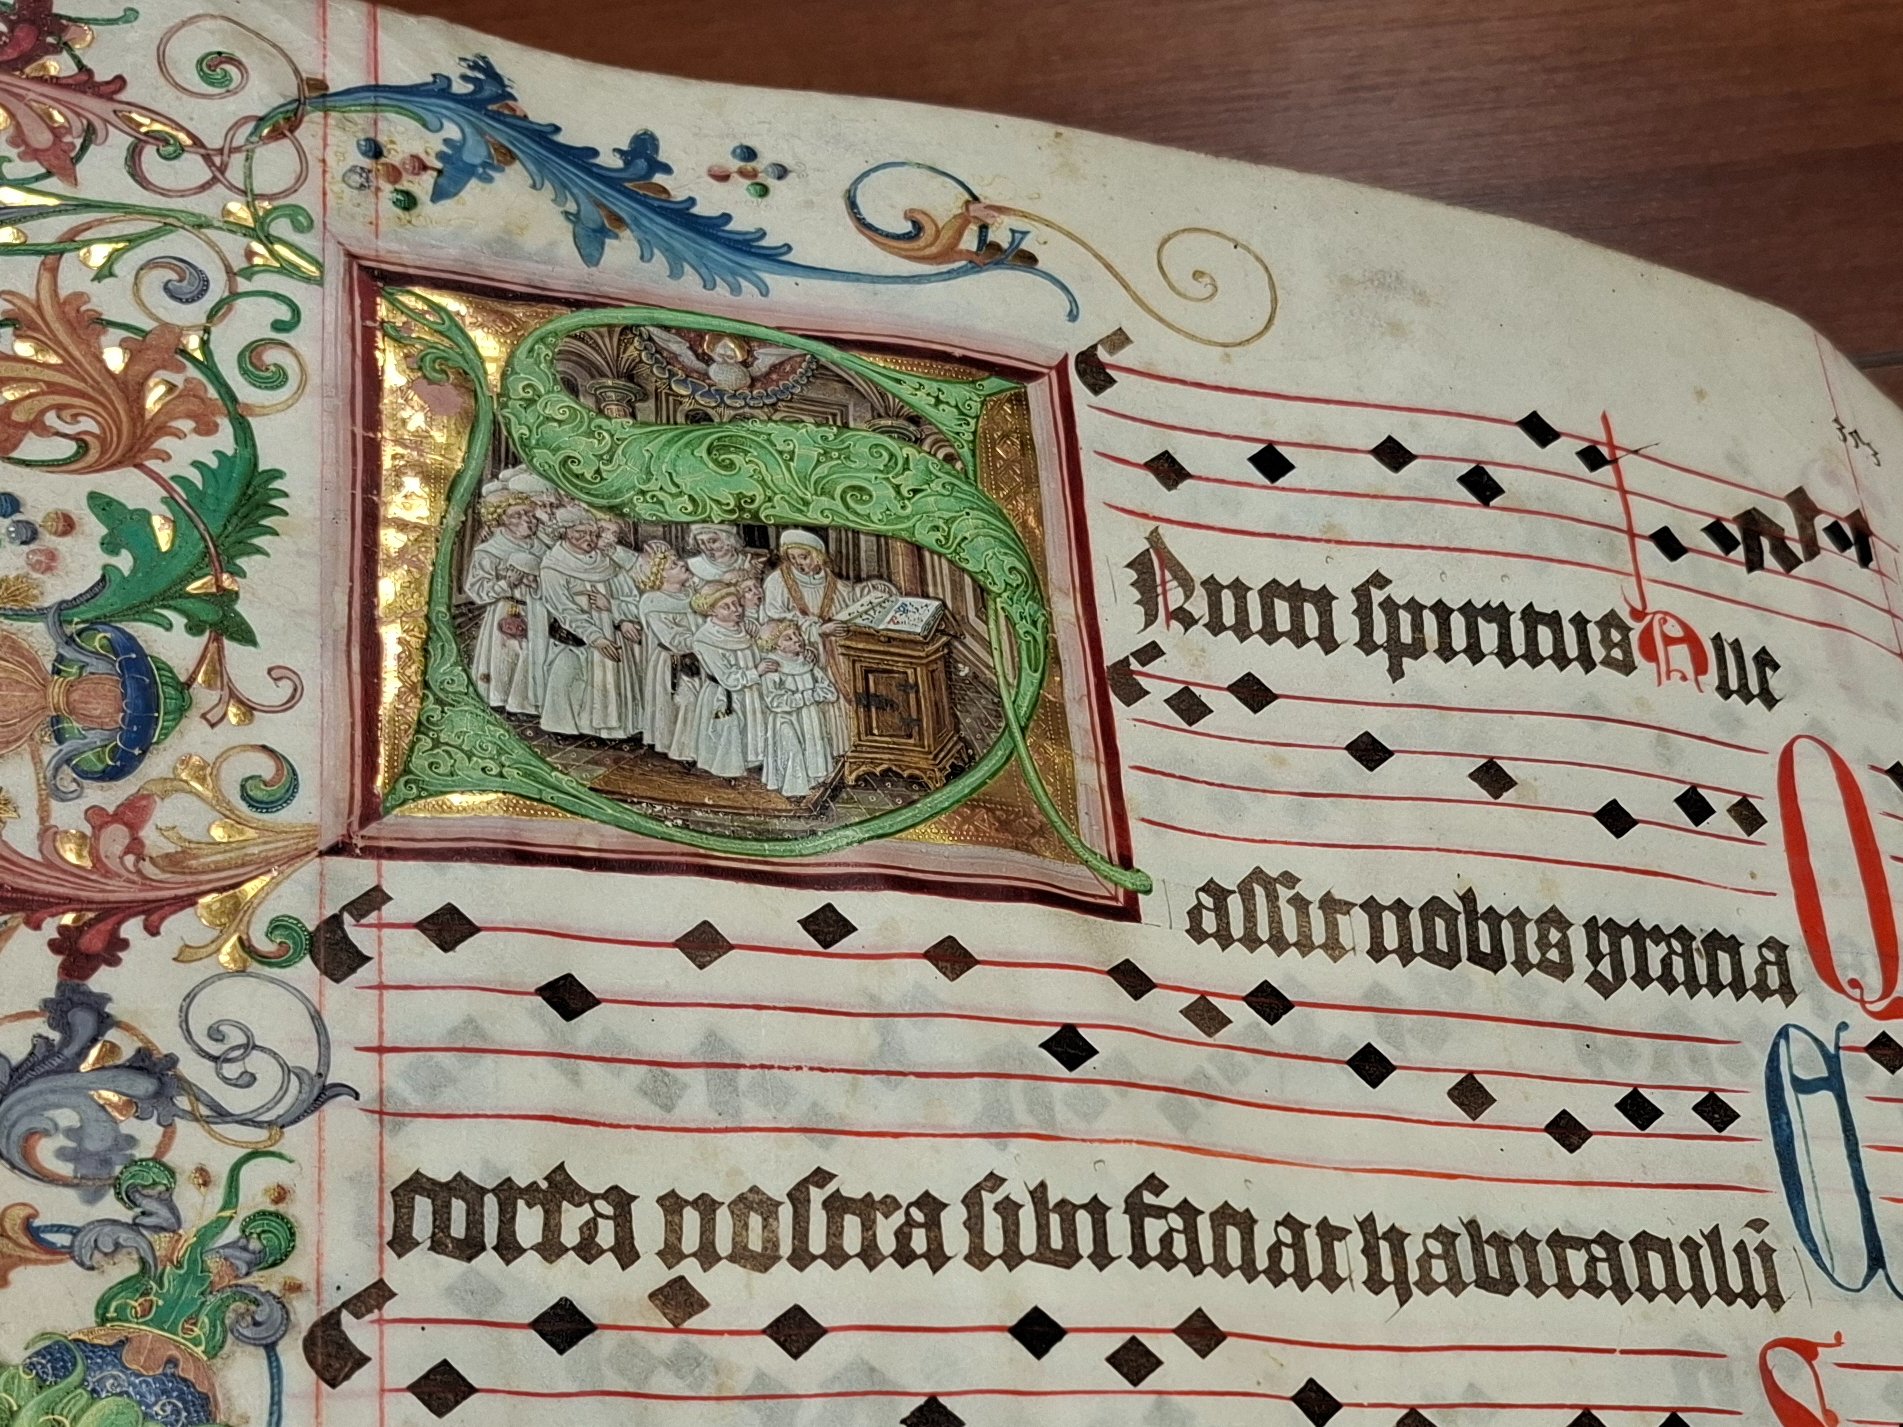 SAncti spiritus Alle
assit nobis gratia
corda nostra sibi faciat habitaculū